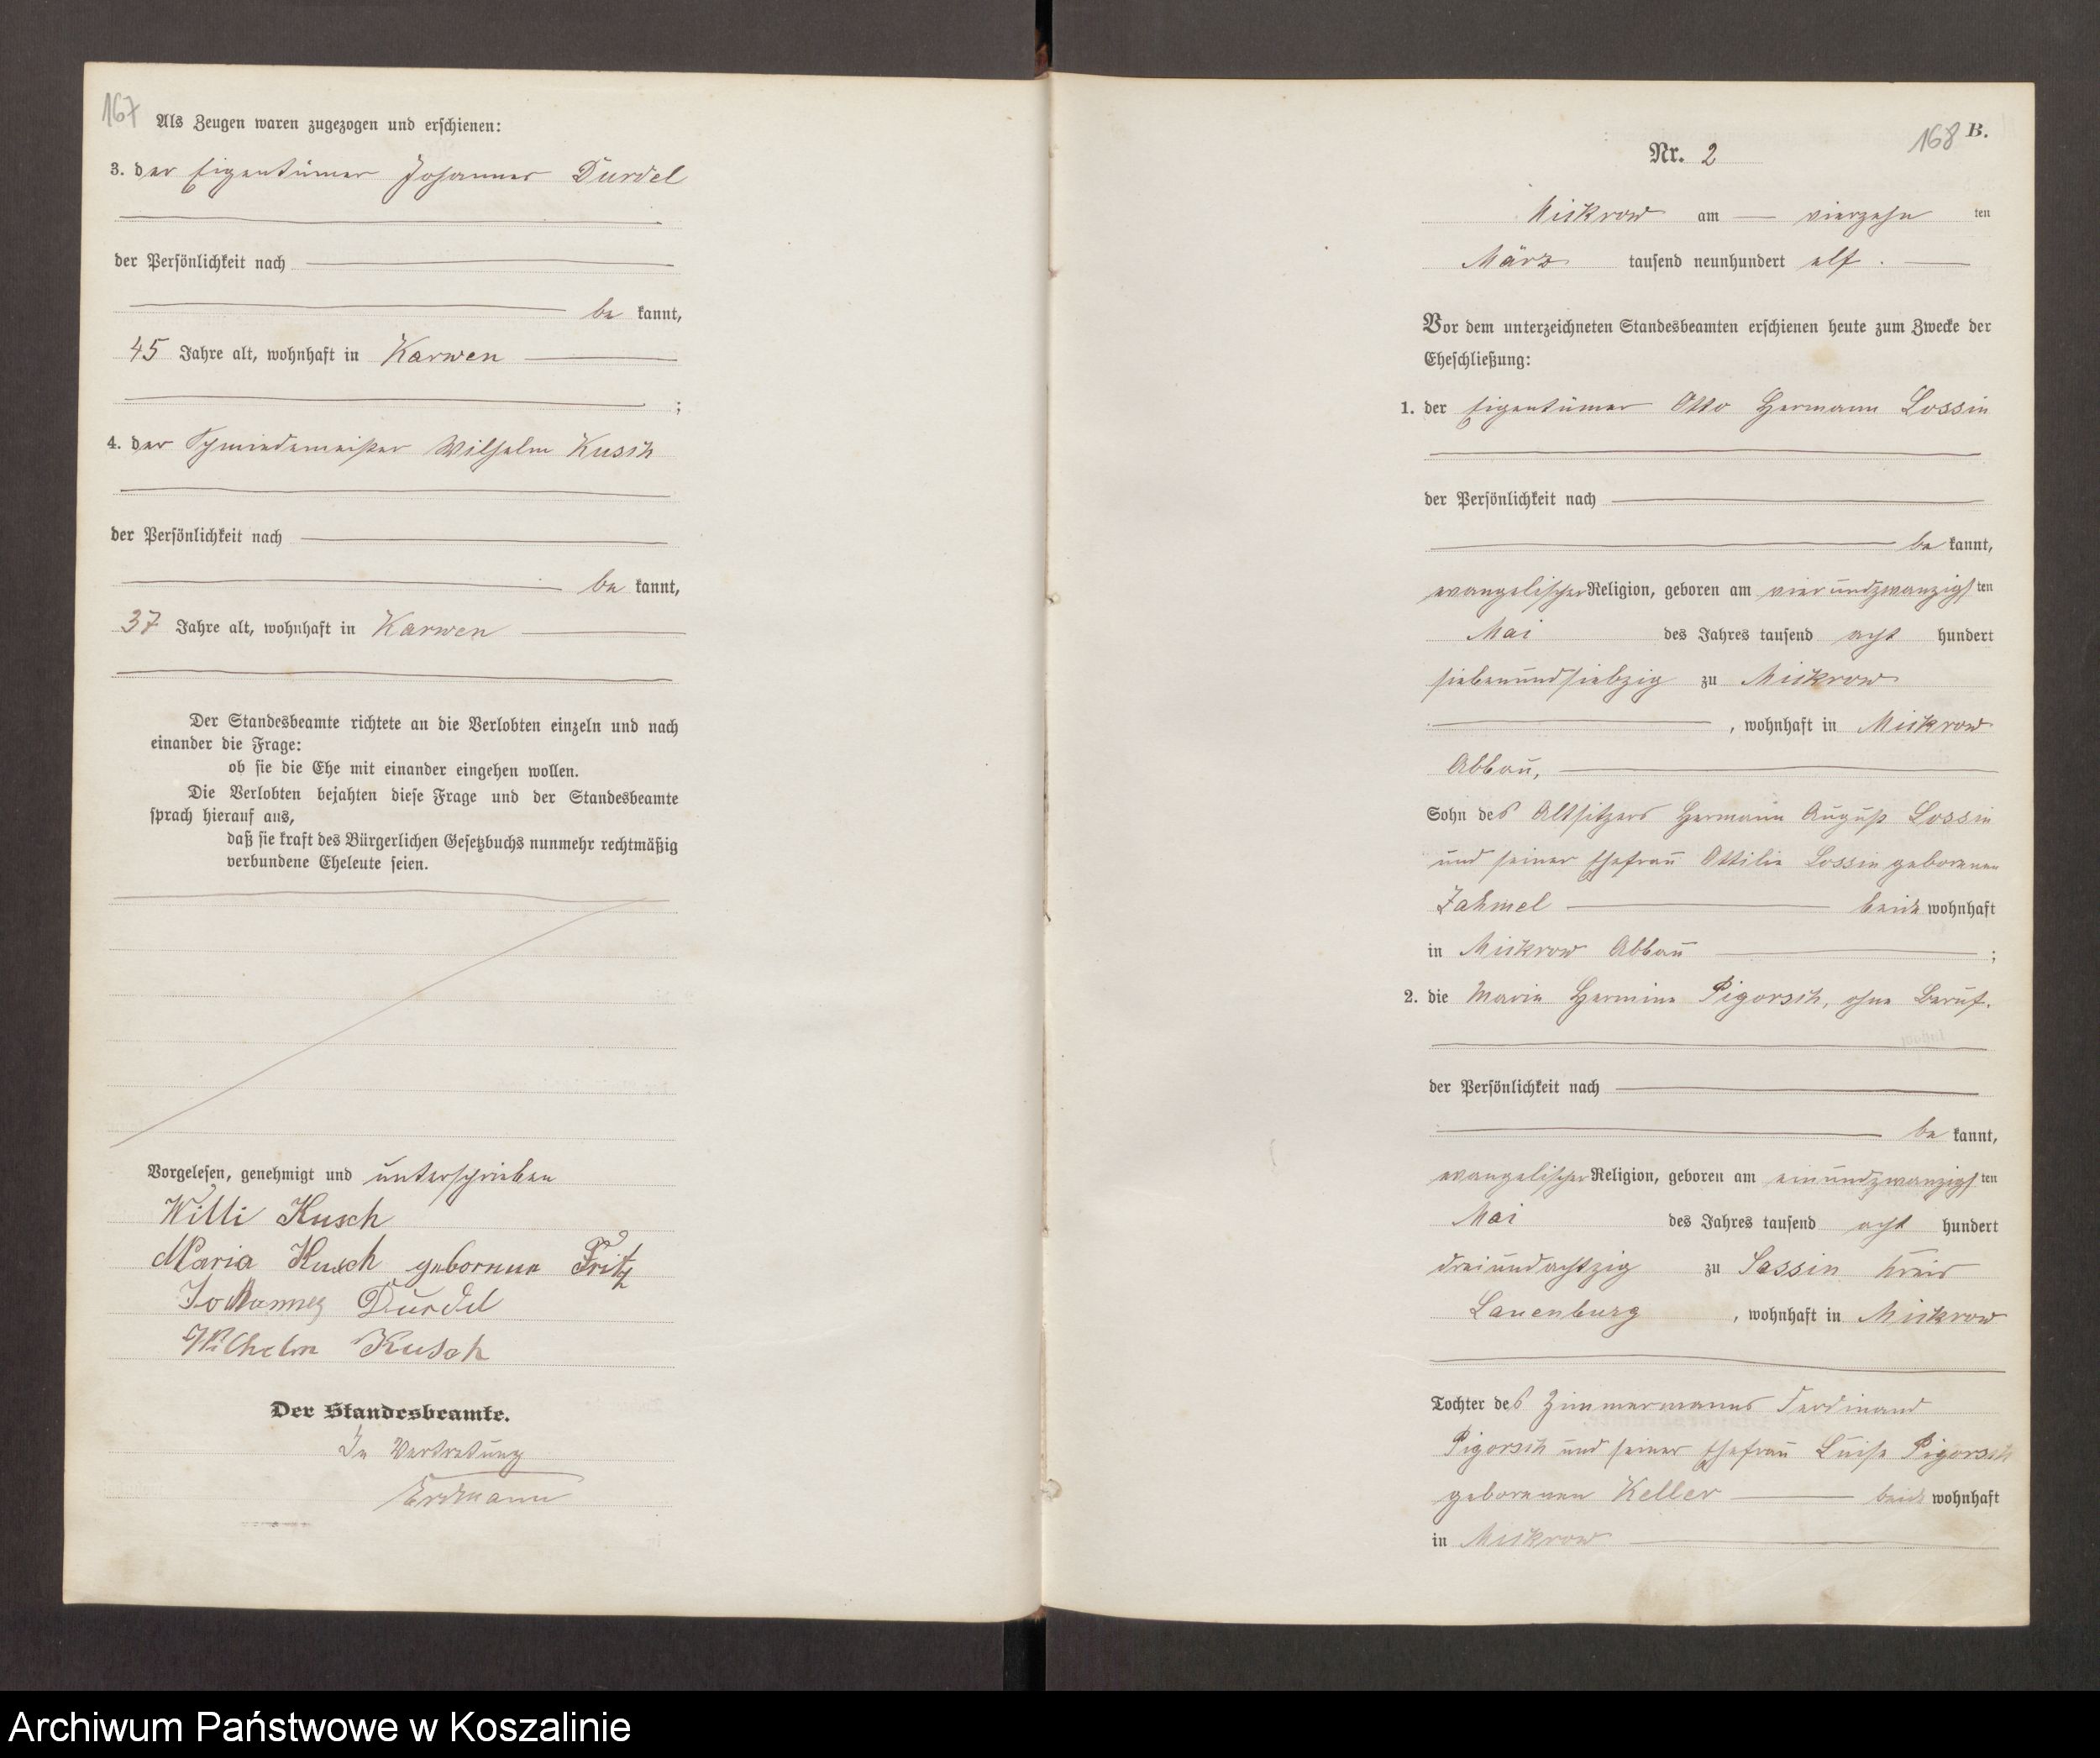 167
Als Zeugen waren zugezogen und erschienen:
3. der Eigentümer Johannes Durdel
der Persönlichkeit nach
be kannt,
45 Jahre alt, wohnhaft in Karwen
;
4. der Schmiedemeister Wilhelm Kusch
der Persönlichkeit nach
be kannt,
37 Jahre alt, wohnhaft in Karwen
Der Standesbeamte richtete an die Verlobten einzeln und nach
einander die Frage:
ob sie die Ehe mit einander eingehen wollen.
Die Verlobten bejahten diese Frage und der Standesbeamte
sprach hierauf aus,
daß sie kraft des Bürgerlichen Gesetzbuchs nunmehr rechtmäßig
verbundene Eheleute seien.
Vorgelesen, genehmigt und unterschrieben
Willi Kusch
Maria Kusch geborene Fritz
Johannes Durdel
Wilhelm Kusch
Der Standesbeamte.
In Vertretung
Erdmann
168 B.
Nr. 2
Mickrow am vierzehn ten
März tausend neunhundert elf.
Vor dem unterzeichneten Standesbeamten erschienen heute zum Zwecke der
Eheschließung:
1. der Eigentümer Otto Hermann Lossin
der Persönlichkeit nach
be kannt,
evangelischer Religion, geboren am vierundzwanzigs ten
Mai des Jahres tausend acht hundert
siebenundsiebzig zu Mickrow
, wohnhaft in Mickrow
Abbau,
Sohn des Altsitzers Hermann August Lossin
und seiner Ehefrau Ottilie Lossin geborenen
Zahmel beide wohnhaft
in Mickrow Abbau ;
2. die Marie Hermine Pigorsch, ohne Beruf.
der Persönlichkeit nach
be kannt,
evangelischer Religion, geboren am einundzwanzigs ten
Mai des Jahres tausend acht hundert
dreiundachtzig zu Sassin Kreis
Lauenburg , wohnhaft in Mickrow
Tochter des Zimmermanns Ferdinand
Pigorsch und seiner Ehefrau Luise Pigorsch
geborenen Keller beide wohnhaft
in Mickrow
Archiwum Państwowe w Koszalinie